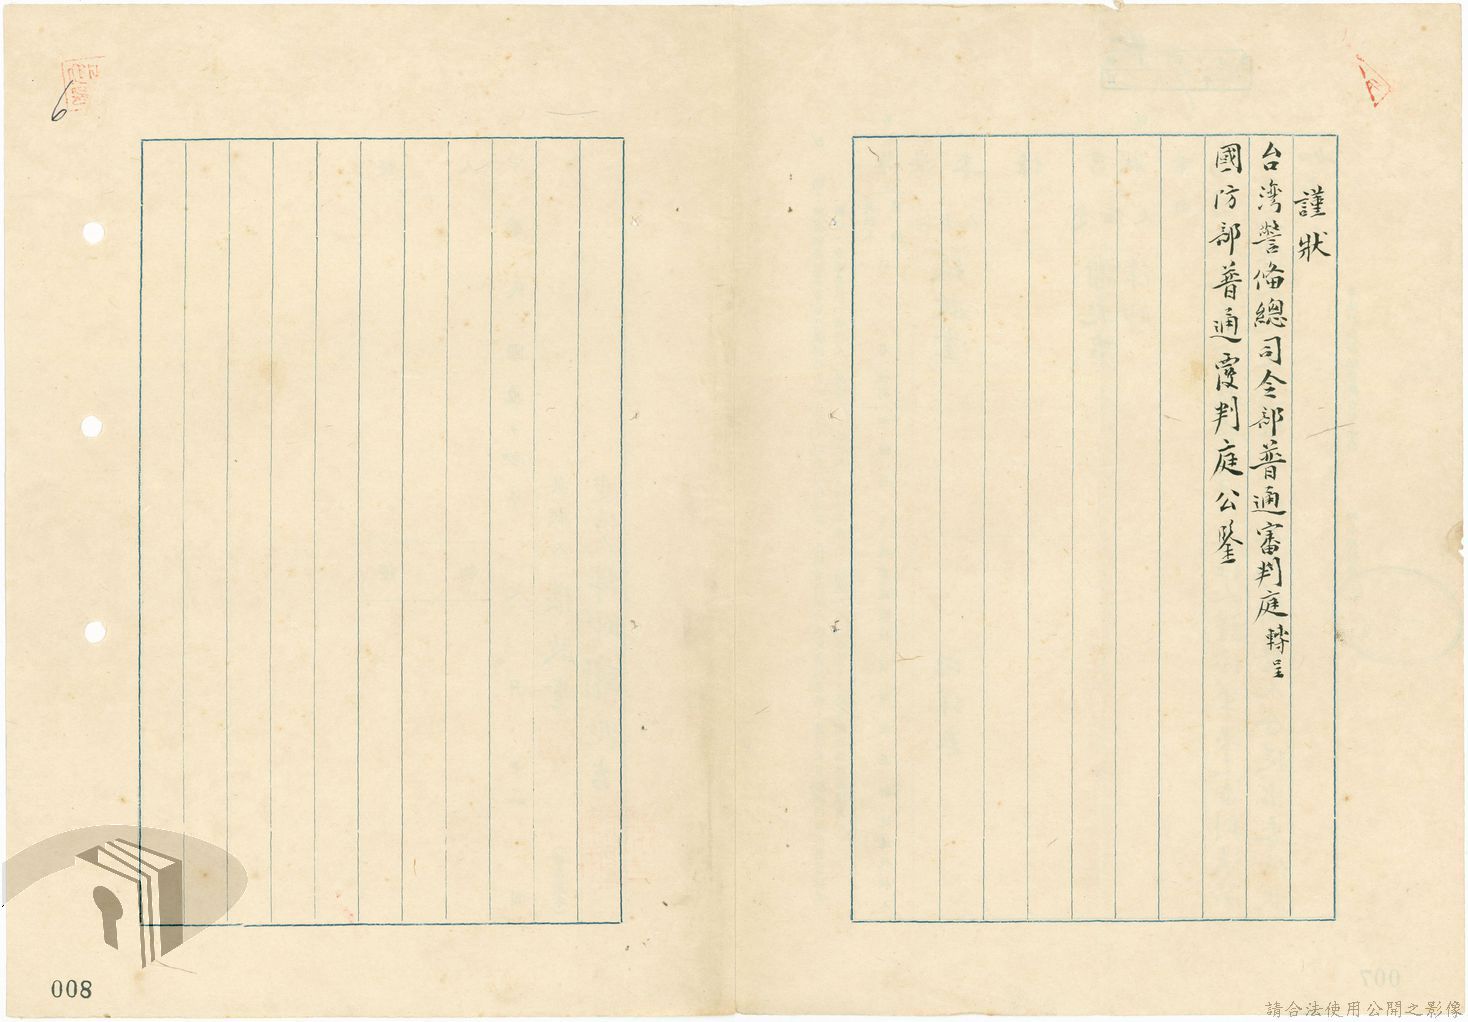 謹狀
台灣警備總司令部普通審判庭轉呈
國防部普通覆判庭公鑒
6
008
007
請合法使用公開之影像